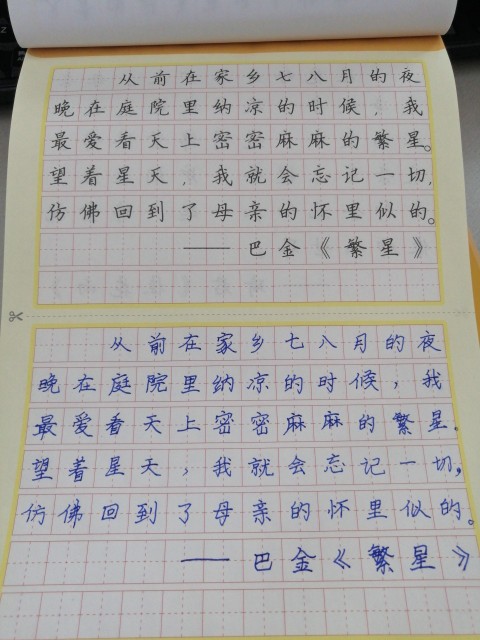 从前在家乡七八月的夜
晚在庭院里纳凉的时候，我
最爱看天上密密麻麻的繁星。
望着星天，我就会忘记一切，
仿佛回到了母亲的怀里似的。
——巴金《繁星》
从前在家乡七八月的夜
晚在庭院里纳凉的时候，我
最爱看天上密密麻麻的繁星。
望着星天，我就会忘记一切，
仿佛回到了母亲的怀里似的。
——巴金《繁星》